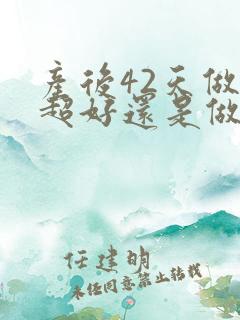 產後42天做
超好還是做
任建明
未任同意禁止转载